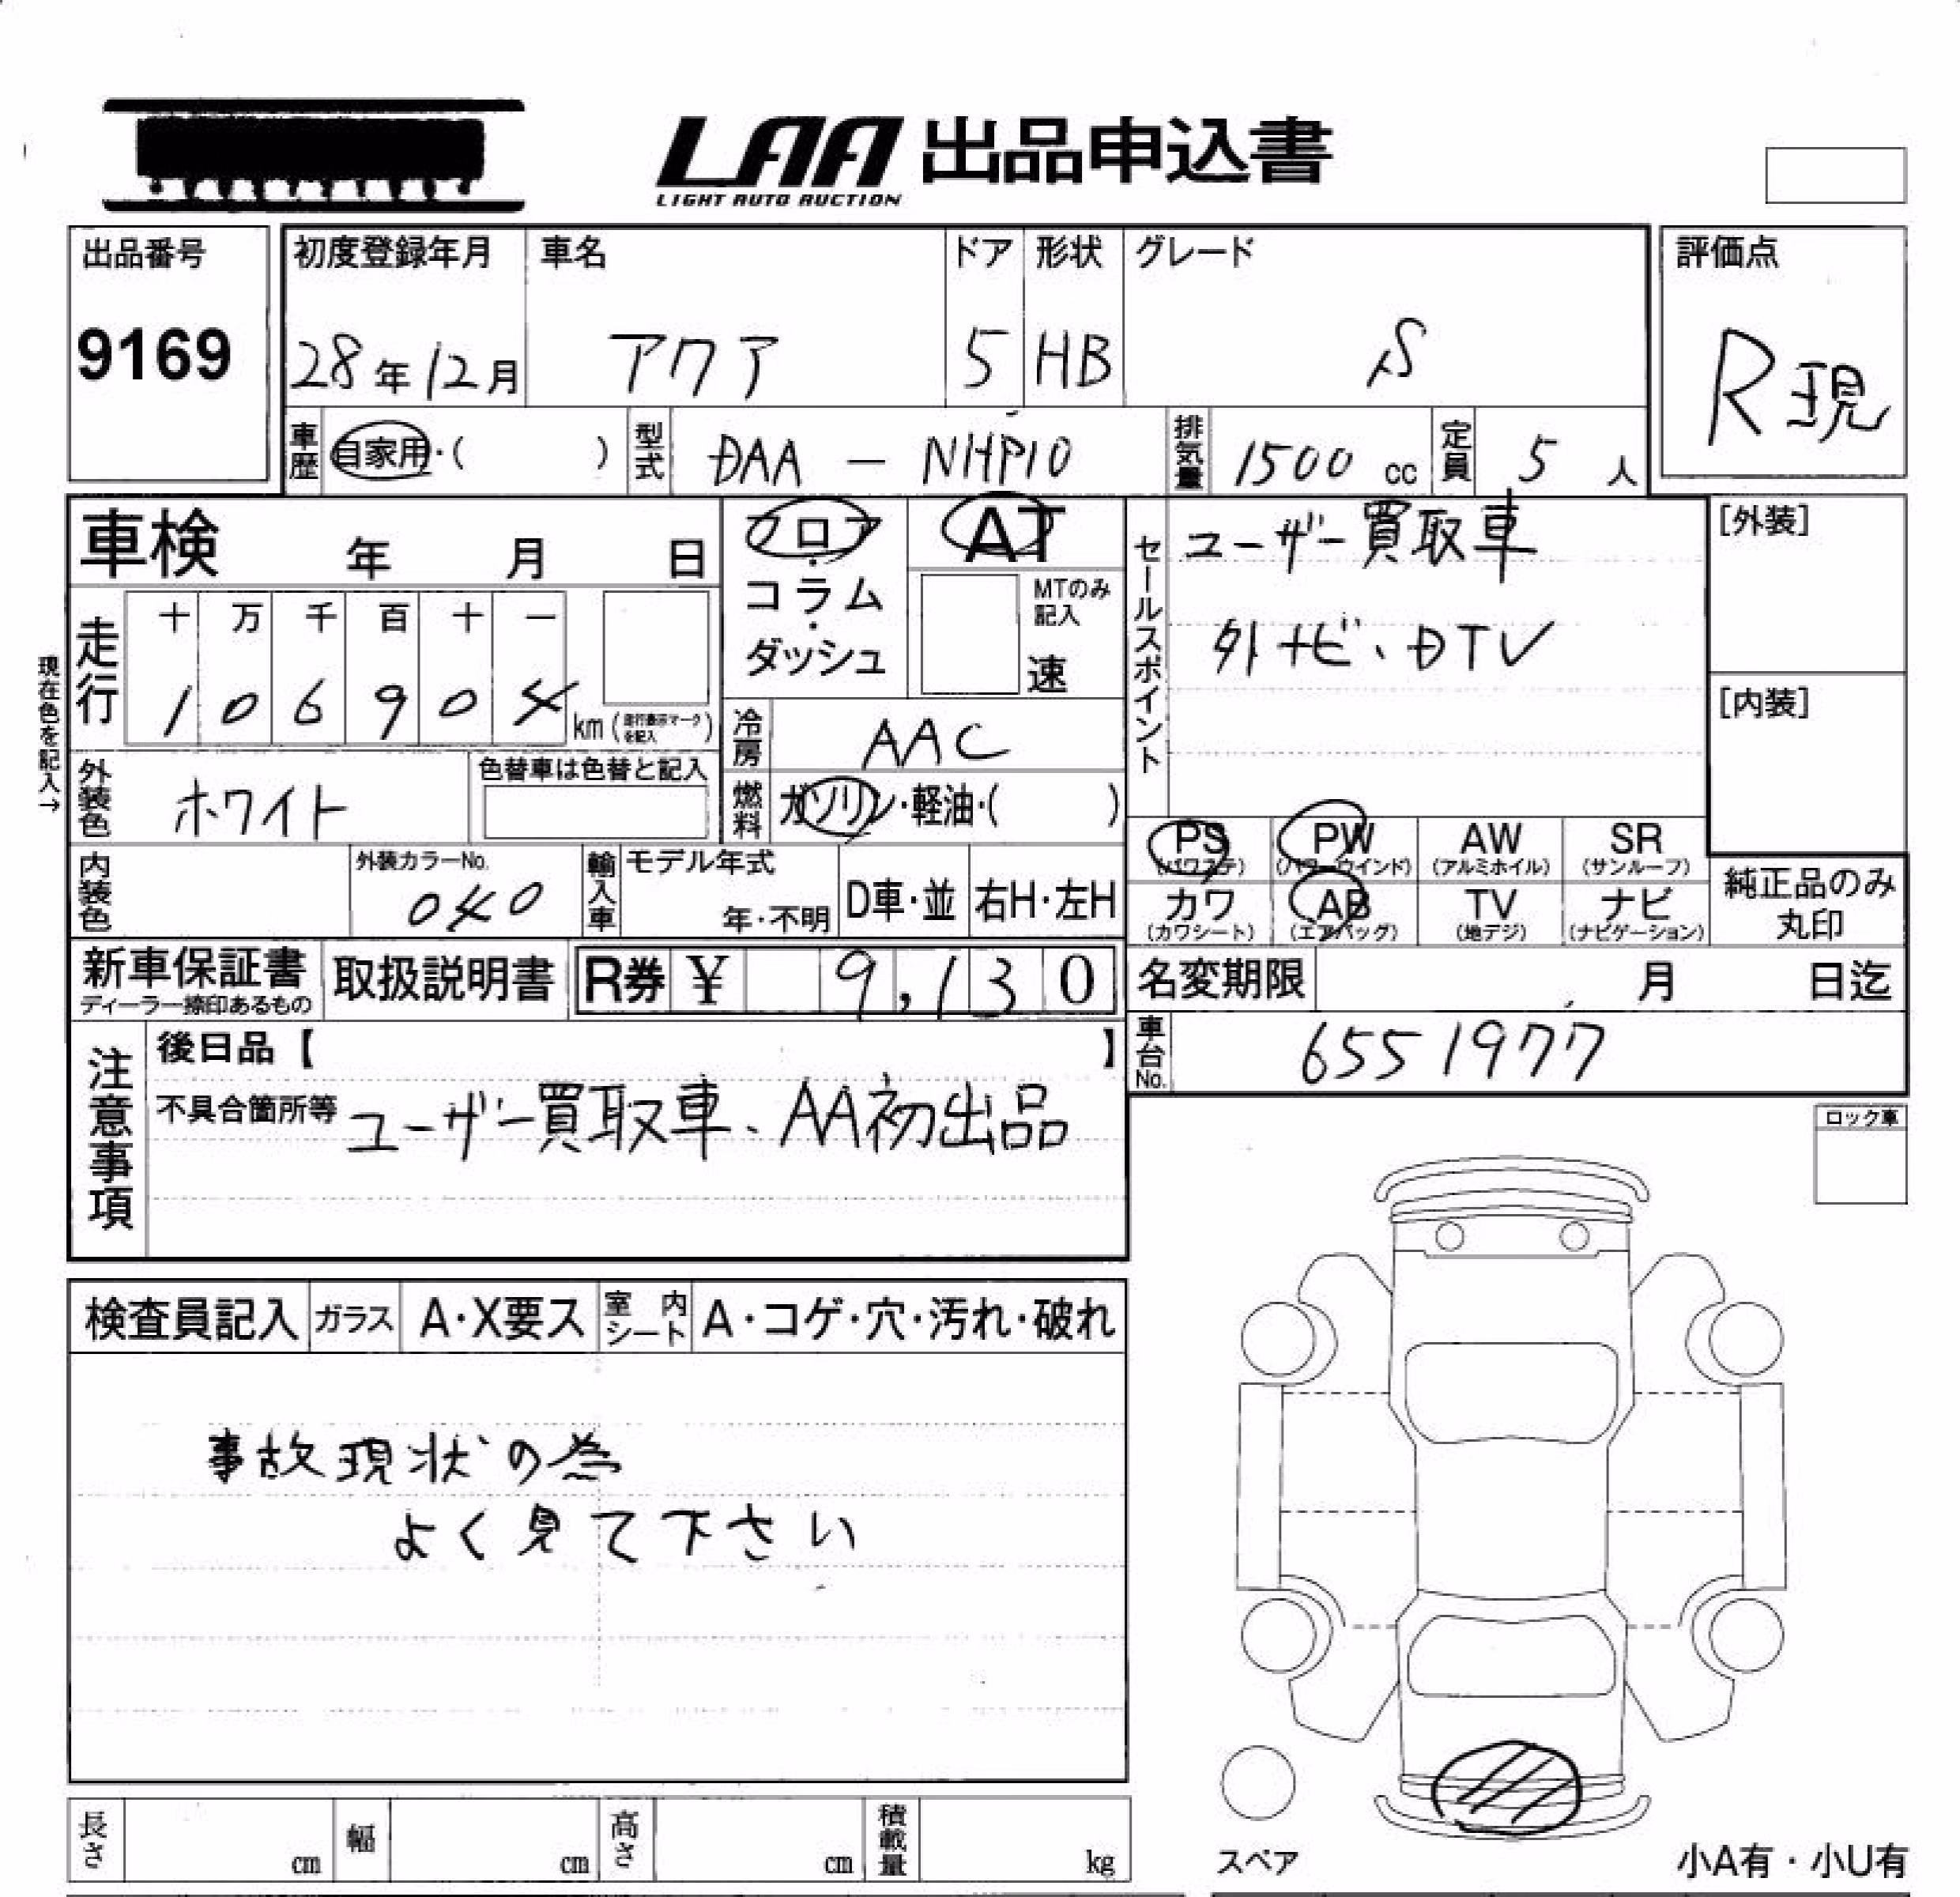 LAA 出品申込書
LIGHT AUTO AUCTION
出品番号
9169
初度登録年月
28年12月
車名
アクア
ドア
5
形状
HB
グレード
S
評価点
R現
車歴 自家用・( )
型式 DAA - NHP10
排気量 1500 cc
定員 5 人
車検 年 月 日
フロア・コラム・ダッシュ
AT
MTのみ記入
速
セールスポイント
ユーザー買取車
外ナビ、DTV
[外装]
[内装]
現在色を記入→
走行
十 万 千 百 十 一
1 0 6 9 0 4 km (走行表示マークを記入)
冷房 AAC
燃料 ガソリン・軽油・( )
外装色 ホワイト
色替車は色替と記入
PS (パワステ) PW (パワーウインド) AW (アルミホイル) SR (サンルーフ)
カワ (カワシート) AB (エアバッグ) TV (地デジ) ナビ (ナビゲーション)
純正品のみ
丸印
内装色
外装カラーNo.
040
輸入車
モデル年式
年・不明
D車・並
右H・左H
新車保証書
ディーラー捺印あるもの
取扱説明書
R券 ¥ 9,130
名変期限 月 日迄
車台No. 6551977
注意事項
後日品【 】
不具合箇所等 ユーザー買取車、AA初出品
ロック車
検査員記入 ガラス A・X要ス 室内シート A・コゲ・穴・汚れ・破れ
事故現状の為
よく見て下さい
長さ cm 幅 cm 高さ cm 積載量 kg
スペア
小A有・小U有